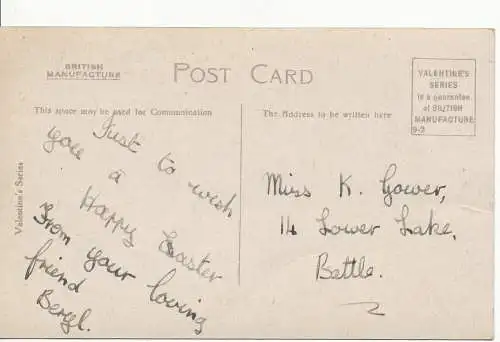 BRITISH
MANUFACTURE
POST CARD
VALENTINE'S
SERIES
is a guarantee
of BRITISH
MANUFACTURE
9-2
This space may be used for Communication
The Address to be written here
Valentine's Series
Just to wish
you a
Happy Easter
From your loving
friend
Beryl.
Miss K. Gower,
14 Lower Lake,
Battle.